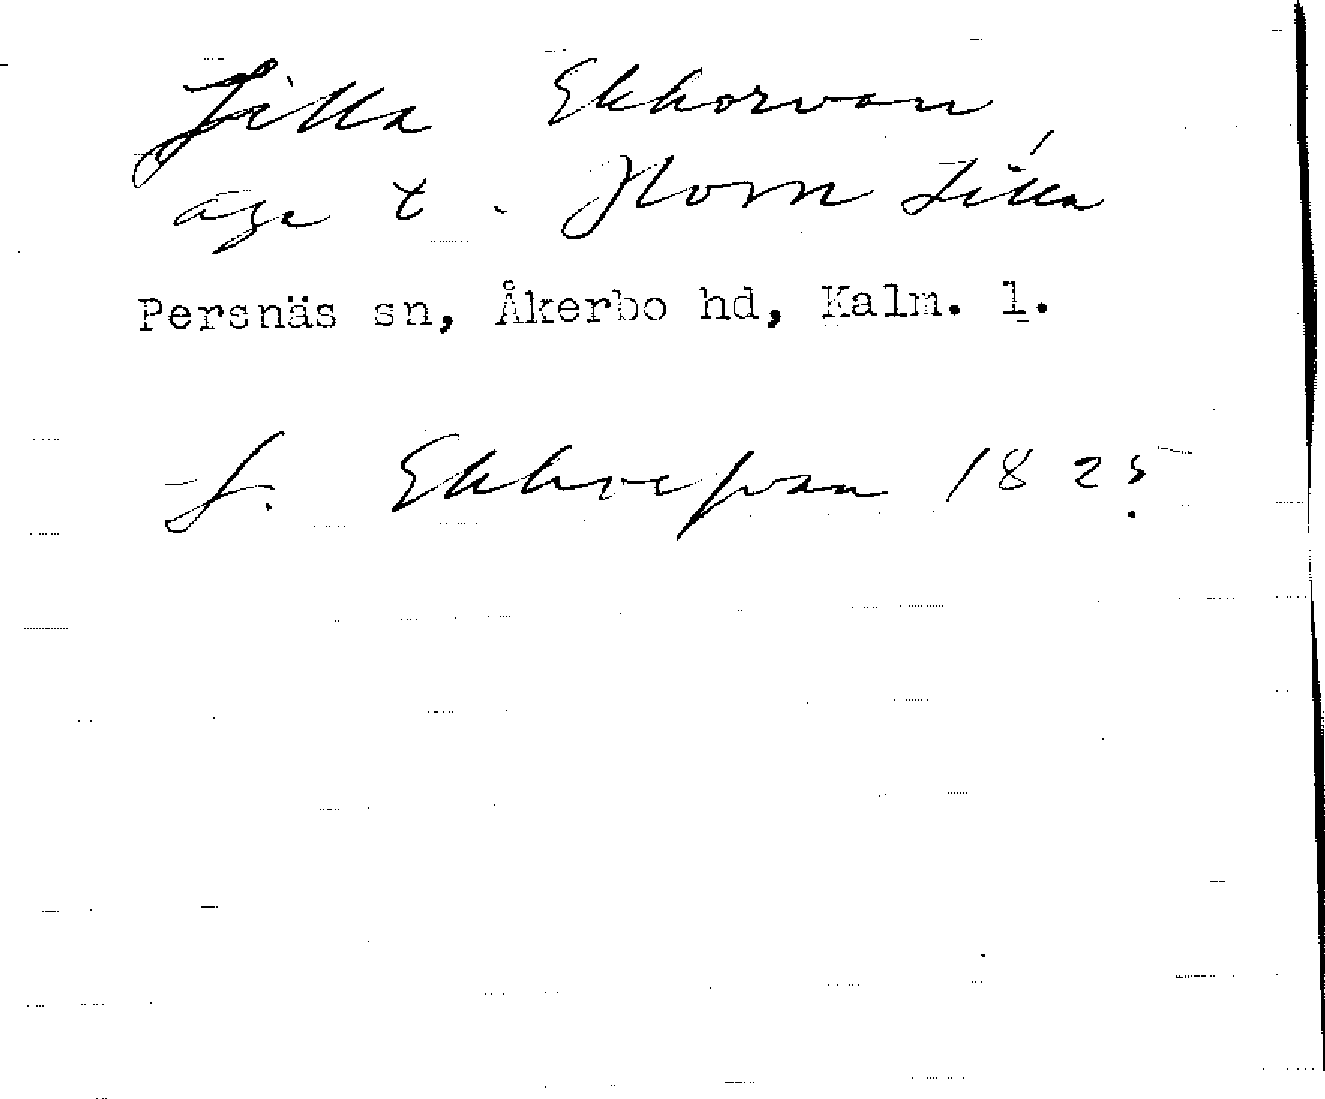 Lilla Ekhorvan
äga t. Horn Lilla
Persnäs sn, Åkerbo hd, Kalm. l.
L. 182